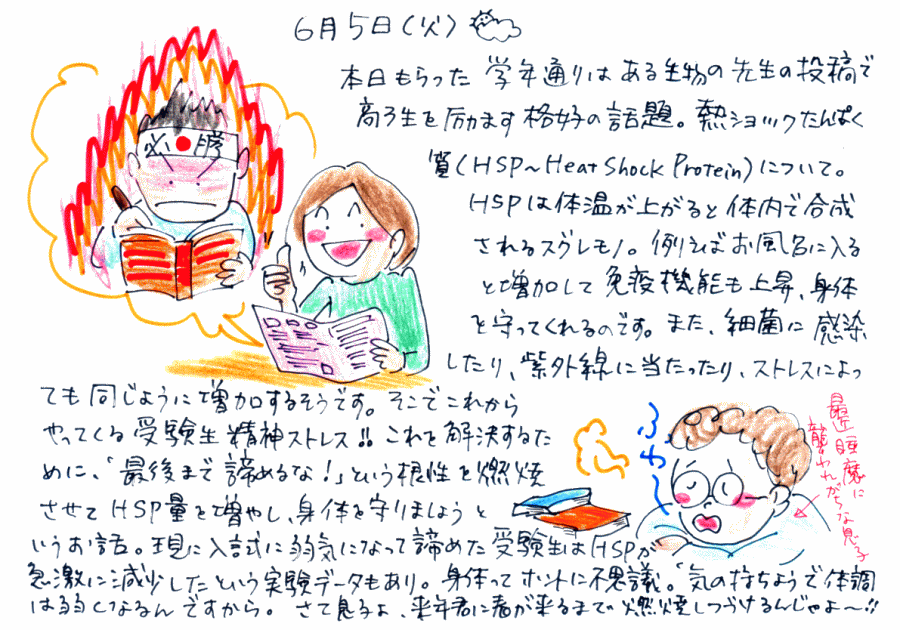 6月5日(火)
本日もらった 学年通りは ある生物の先生の投稿で
高3生を励ます格好の話題。熱ショックたんぱく
質(HSP~Heat Shock Protein)について。
HSPは体温が上がると体内で合成
されるスグレモノ。例えばお風呂に入る
と増加して免疫機能も上昇、身体
を守ってくれるのです。また、細菌に感染
したり、紫外線に当たったり、ストレスによっ
ても同じように増加するそうです。そこでこれから
やってくる受験生精神ストレス!!これを解決するた
めに、「最後まで諦めるな!」という根性を燃焼
させてHSP量を増やし、身体を守りましょうと
いうお話。現に入試に弱気になって諦めた受験生はHSPが
急激に減少したという実験データもあり。身体ってホントに不思議。「気の持ちよう」で体調
は弱くなるんですから。さて息子よ、来年君に春が来るまで燃焼しつづけるんじゃよ〜!!
必勝
ふわ〜
最近睡魔に
襲われがちな息子